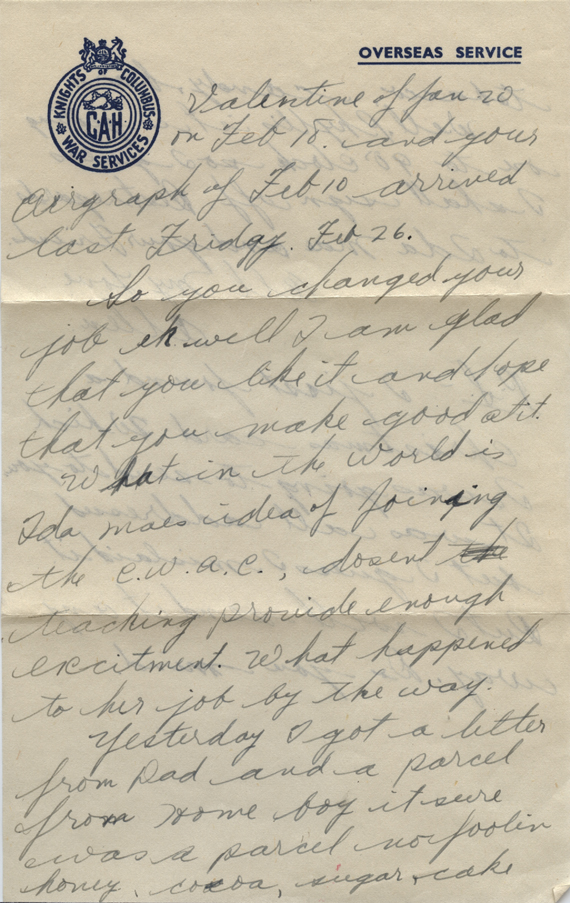 OVERSEAS SERVICE
KNIGHTS OF COLUMBUS
C.A.H.
WAR SERVICES
Valentine of Jan 20
on Feb 18. and your
airgraph of Feb 10 arrived
last Friday. Feb 26.
So you changed your
job eh well I am glad
that you like it and hope
that you make good at it.
What in the world is
Ida maes idea of joining
the C.W.A.C., dosent the
teaching provide enough
excitment. What happened
to her job by the way.
Yesterday I got a letter
from Dad and a parcel
from Home boy it sure
was a parcel no foolin
honey, cocoa, sugar, cake